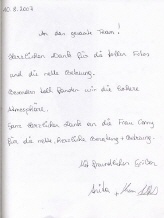 10.8.2007
An das ganze Team!
Herzlichen Dank für die tollen Fotos
und die nette Betreuung.
Besonders toll fanden wir die lockere
Atmosphäre.
Ganz herzlichen Dank an die Frau Conny
für die nette, herzliche Beratung + Betreuung.
Mit freundlichen Grüßen